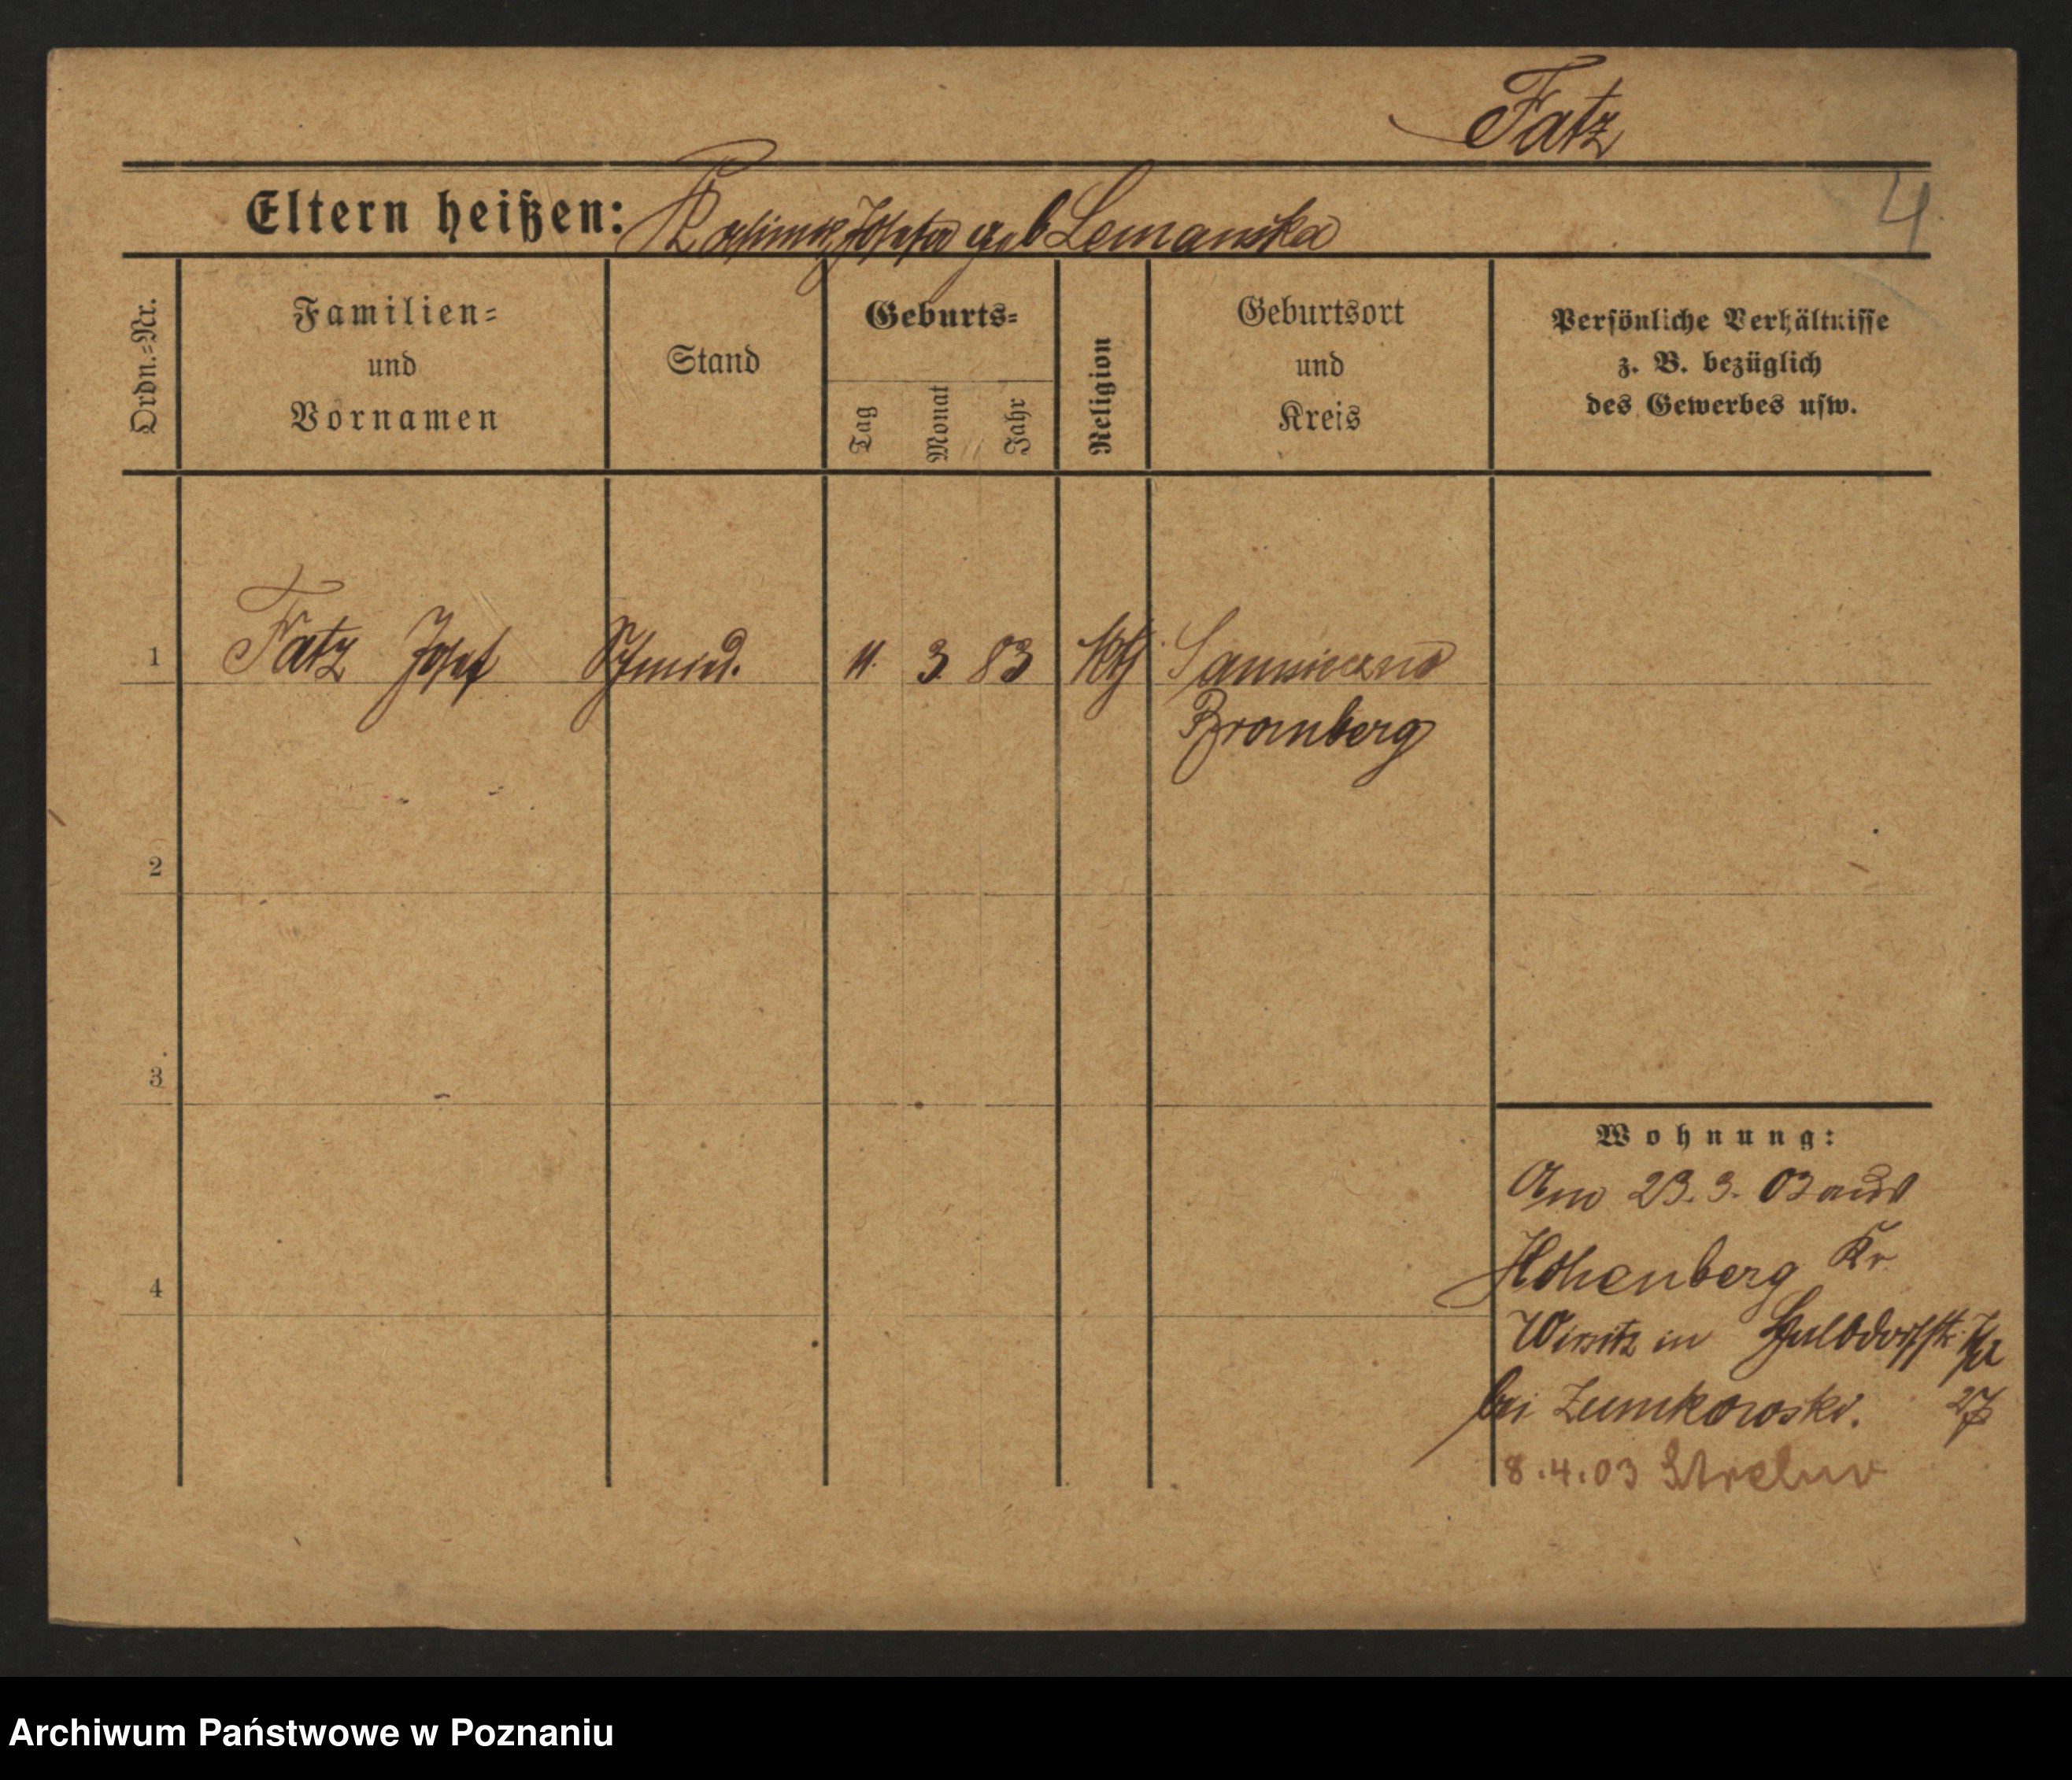 Fatz
4
Eltern heißen: Kasimir Josefa geb Lemanska
Ordn.=Nr.
Familien=
und
Vornamen
Stand
Geburts=
Tag
Monat
Jahr
Religion
Geburtsort
und
Kreis
Persönliche Verhältnisse
z. B. bezüglich
des Gewerbes usw.
1 Fatz Josef Schmied. 11. 3. 83 Kth
Bromberg
2
3
4
Wohnung:
Am 23. 3. 03 aus
Hohenberg Kr
Wirsitz in
bei Zumkowski. 27/3
8.4.03 Strelno
Archiwum Państwowe w Poznaniu